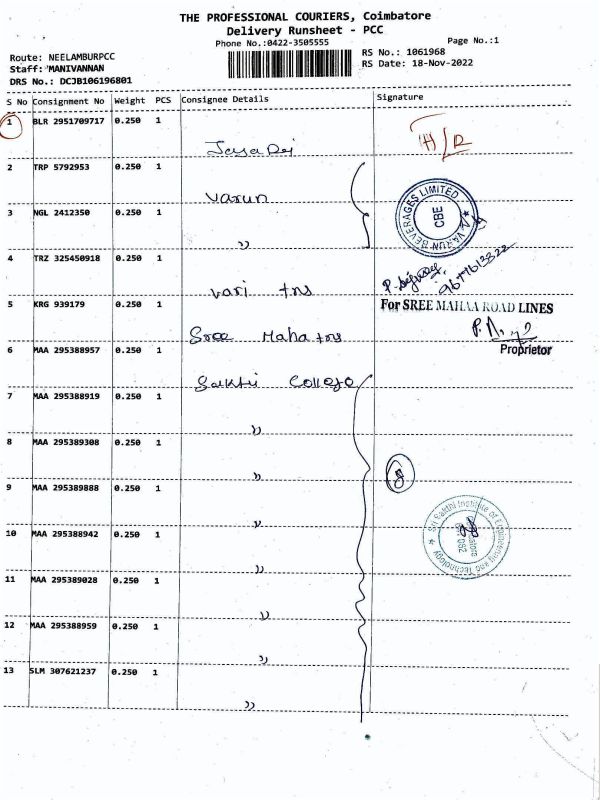 THE PROFESSIONAL COURIERS, Coimbatore
Delivery Runsheet - PCC
Phone No.:0422-3505555
Page No.:1
Route: NEELAMBURPCC
RS No.: 1061968
Staff: MANIVANNAN
RS Date: 18-Nov-2022
DRS No.: DCJB106196801
S No Consignment No Weight PCS Consignee Details Signature
1 BLR 2951709717 0.250 1
H/R
2 TRP 5792953 0.250 1
Varun
3 NGL 2412350 0.250 1
VARUN BEVERAGES LIMITED
CBE
"
4 TRZ 325450918 0.250 1
vari tns
5 KRG 939179 0.250 1
For SREE MAHAA ROAD LINES
Sree Maha tns
6 MAA 295388957 0.250 1
Proprietor
Sakthi College
7 MAA 295388919 0.250 1
"
8 MAA 295389308 0.250 1
"
8
9 MAA 295389888 0.250 1
"
Sri Sakthi Institute of Engineering and Technology
10 MAA 295388942 0.250 1
"
11 MAA 295389028 0.250 1
"
12 MAA 295388959 0.250 1
"
13 SLM 307621237 0.250 1
"